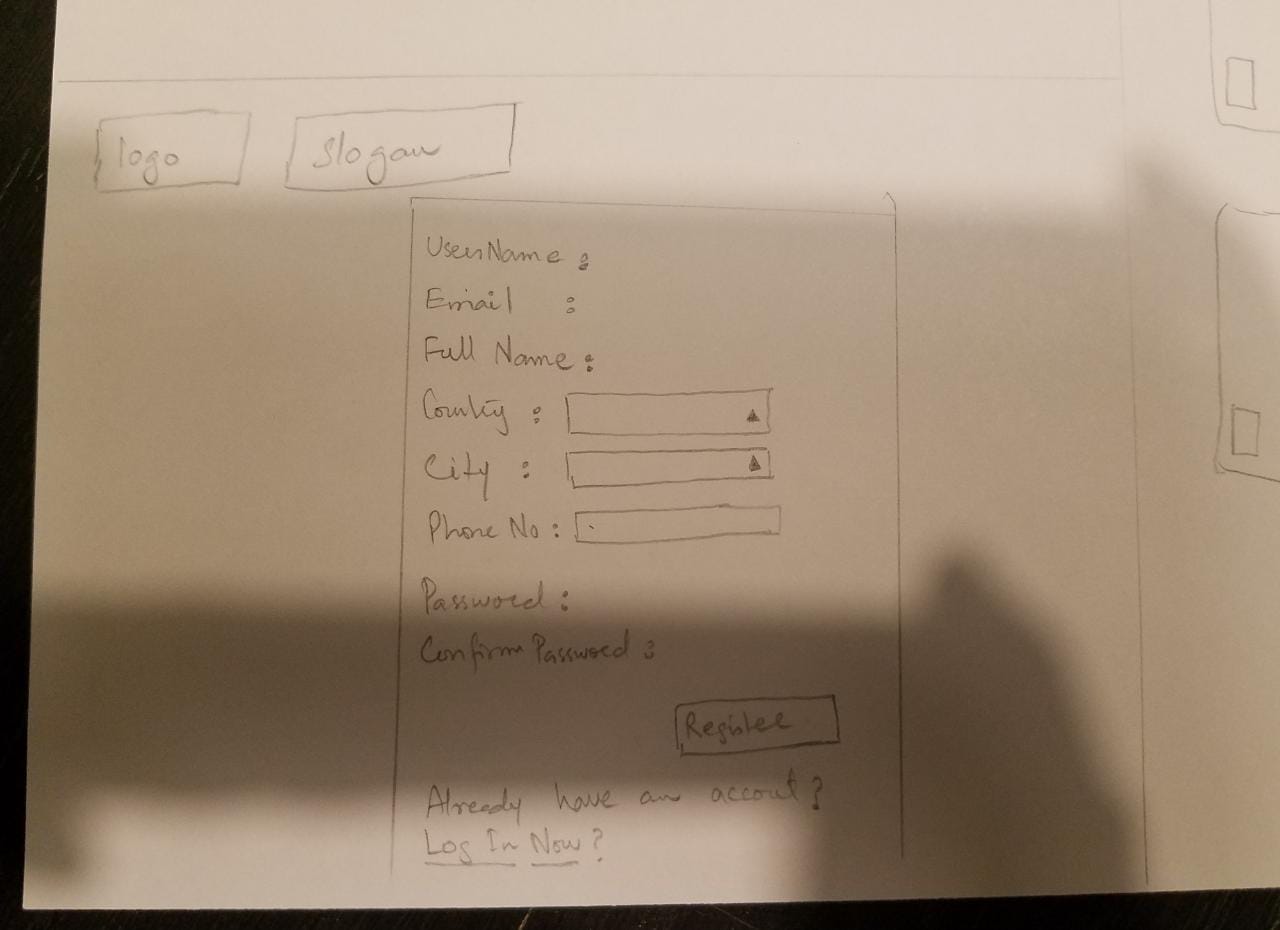 logo
Slogan
UserName :
Email :
Full Name :
Country :
City :
Phone No :
Password :
Confirm Password :
Register
Already have an accout?
Log In Now?